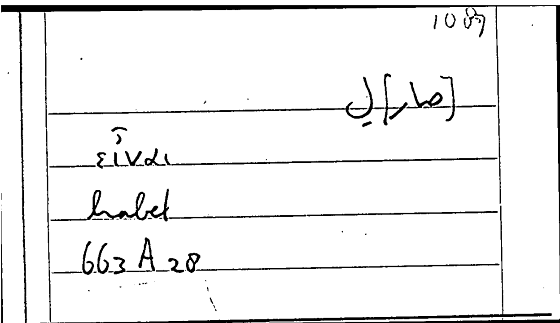 1089
[صار] ل
εἶναι
habet
663 A 28